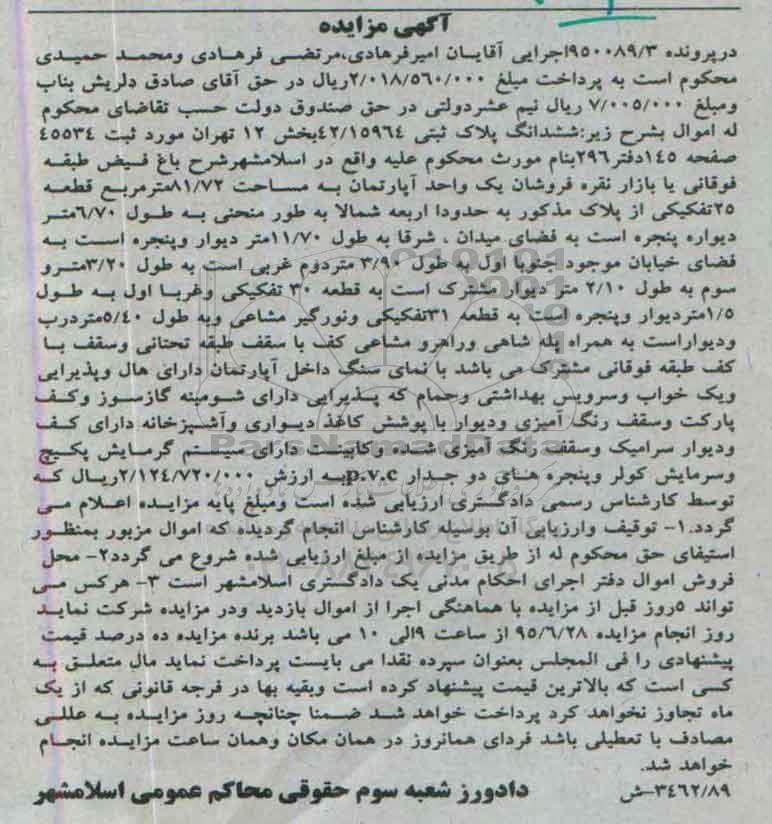 آگهی مزایده
درپرونده ۹۵۰۰۸۹/۳اجرایی آقایان امیرفرهادی،مرتضی فرهادی ومحمد حمیدی
محکوم است به پرداخت مبلغ ۲/۰۱۸/۵۶۰/۰۰۰ریال در حق آقای صادق دلریش بناب
ومبلغ ۷/۰۰۵/۰۰۰ ریال نیم عشردولتی در حق صندوق دولت حسب تقاضای محکوم
له اموال بشرح زیر:ششدانگ پلاک ثبتی ۴۲/۱۵۹۶۴بخش ۱۲ تهران مورد ثبت ۴۵۵۳۴
صفحه ۱۴۵دفتر۲۹۶بنام مورث محکوم علیه واقع در اسلامشهرشرح باغ فیض طبقه
فوقانی یا بازار نقره فروشان یک واحد آپارتمان به مساحت ۸۱/۷۲مترمربع قطعه
۲۵تفکیکی از پلاک مذکور به حدودا اربعه شمالا به طور منحنی به طول ۶/۷۰متر
دیواره پنجره است به فضای میدان ، شرقا به طول ۱۱/۷۰متر دیوار وپنجره است به
فضای خیابان موجود جنوبا اول به طول ۳/۹۰ متردوم غربی است به طول ۳/۲۰مترو
سوم به طول ۲/۱۰ متر دیوار مشترک است به قطعه ۳۰ تفکیکی وغربا اول به طول
۱/۵متردیوار وپنجره است به قطعه ۳۱تفکیکی ونورگیر مشاعی وبه طول ۵/۴۰متردرب
ودیواراست به همراه پله شاهی وراهرو مشاعی کف با سقف طبقه تحتانی وسقف با
کف طبقه فوقانی مشترک می باشد با نمای سنگ داخل آپارتمان دارای هال وپذیرایی
ویک خواب وسرویس بهداشتی وحمام که پذیرایی دارای شومینه گازسوز وکف
پارکت وسقف رنگ آمیزی ودیوار با پوشش کاغذ دیواری وآشپزخانه دارای کف
ودیوار سرامیک وسقف رنگ آمیزی شده وکابینت دارای سیستم گرمایش پکیج
وسرمایش کولر وپنجره های دو جدار p.v.cبه ارزش ۲/۱۲۴/۷۲۰/۰۰۰ریال که
توسط کارشناس رسمی دادگستری ارزیابی شده است ومبلغ پایه مزایده اعلام می
گردد.۱- توقیف وارزیابی آن بوسیله کارشناس انجام گردیده که اموال مزبور بمنظور
استیفای حق محکوم له از طریق مزایده از مبلغ ارزیابی شده شروع می گردد۲- محل
فروش اموال دفتر اجرای احکام مدنی یک دادگستری اسلامشهر است ۳- هرکس می
تواند ۵روز قبل از مزایده با هماهنگی اجرا از اموال بازدید ودر مزایده شرکت نماید
روز انجام مزایده ۹۵/۶/۲۸ از ساعت ۹الی ۱۰ می باشد برنده مزایده ده درصد قیمت
پیشنهادی را فی المجلس بعنوان سپرده نقدا می بایست پرداخت نماید مال متعلق به
کسی است که بالاترین قیمت پیشنهاد کرده است وبقیه بها در فرجه قانونی که از یک
ماه تجاوز نخواهد کرد پرداخت خواهد شد ضمنا چنانچه روز مزایده به عللی
مصادف با تعطیلی باشد فردای همانروز در همان مکان وهمان ساعت مزایده انجام
خواهد شد.
۳۴۶۲/۸۹-ش دادورز شعبه سوم حقوقی محاکم عمومی اسلامشهر
ParsNamadData